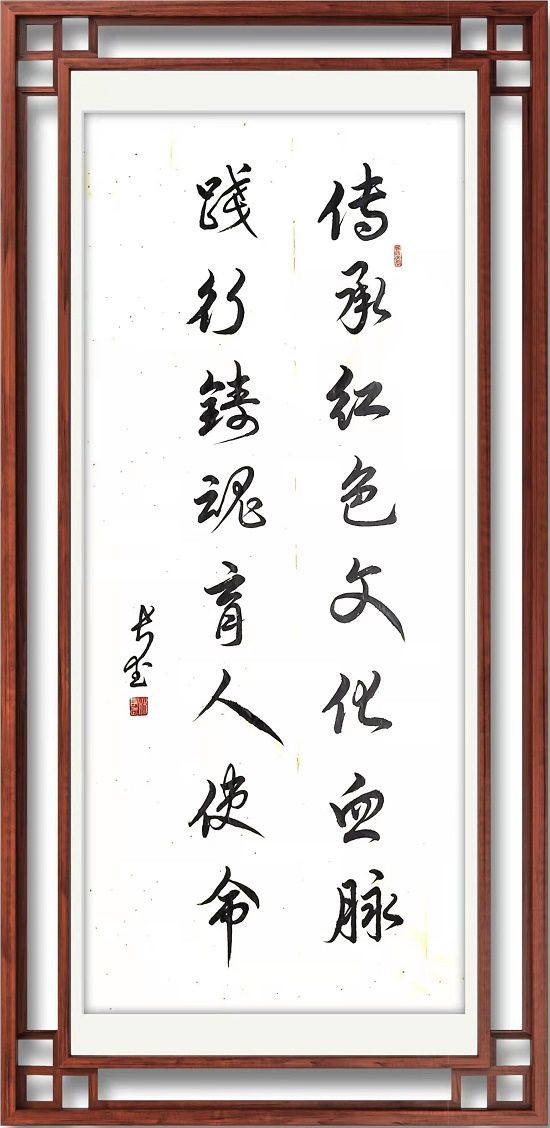 传承红色文化血脉
践行铸魂育人使命